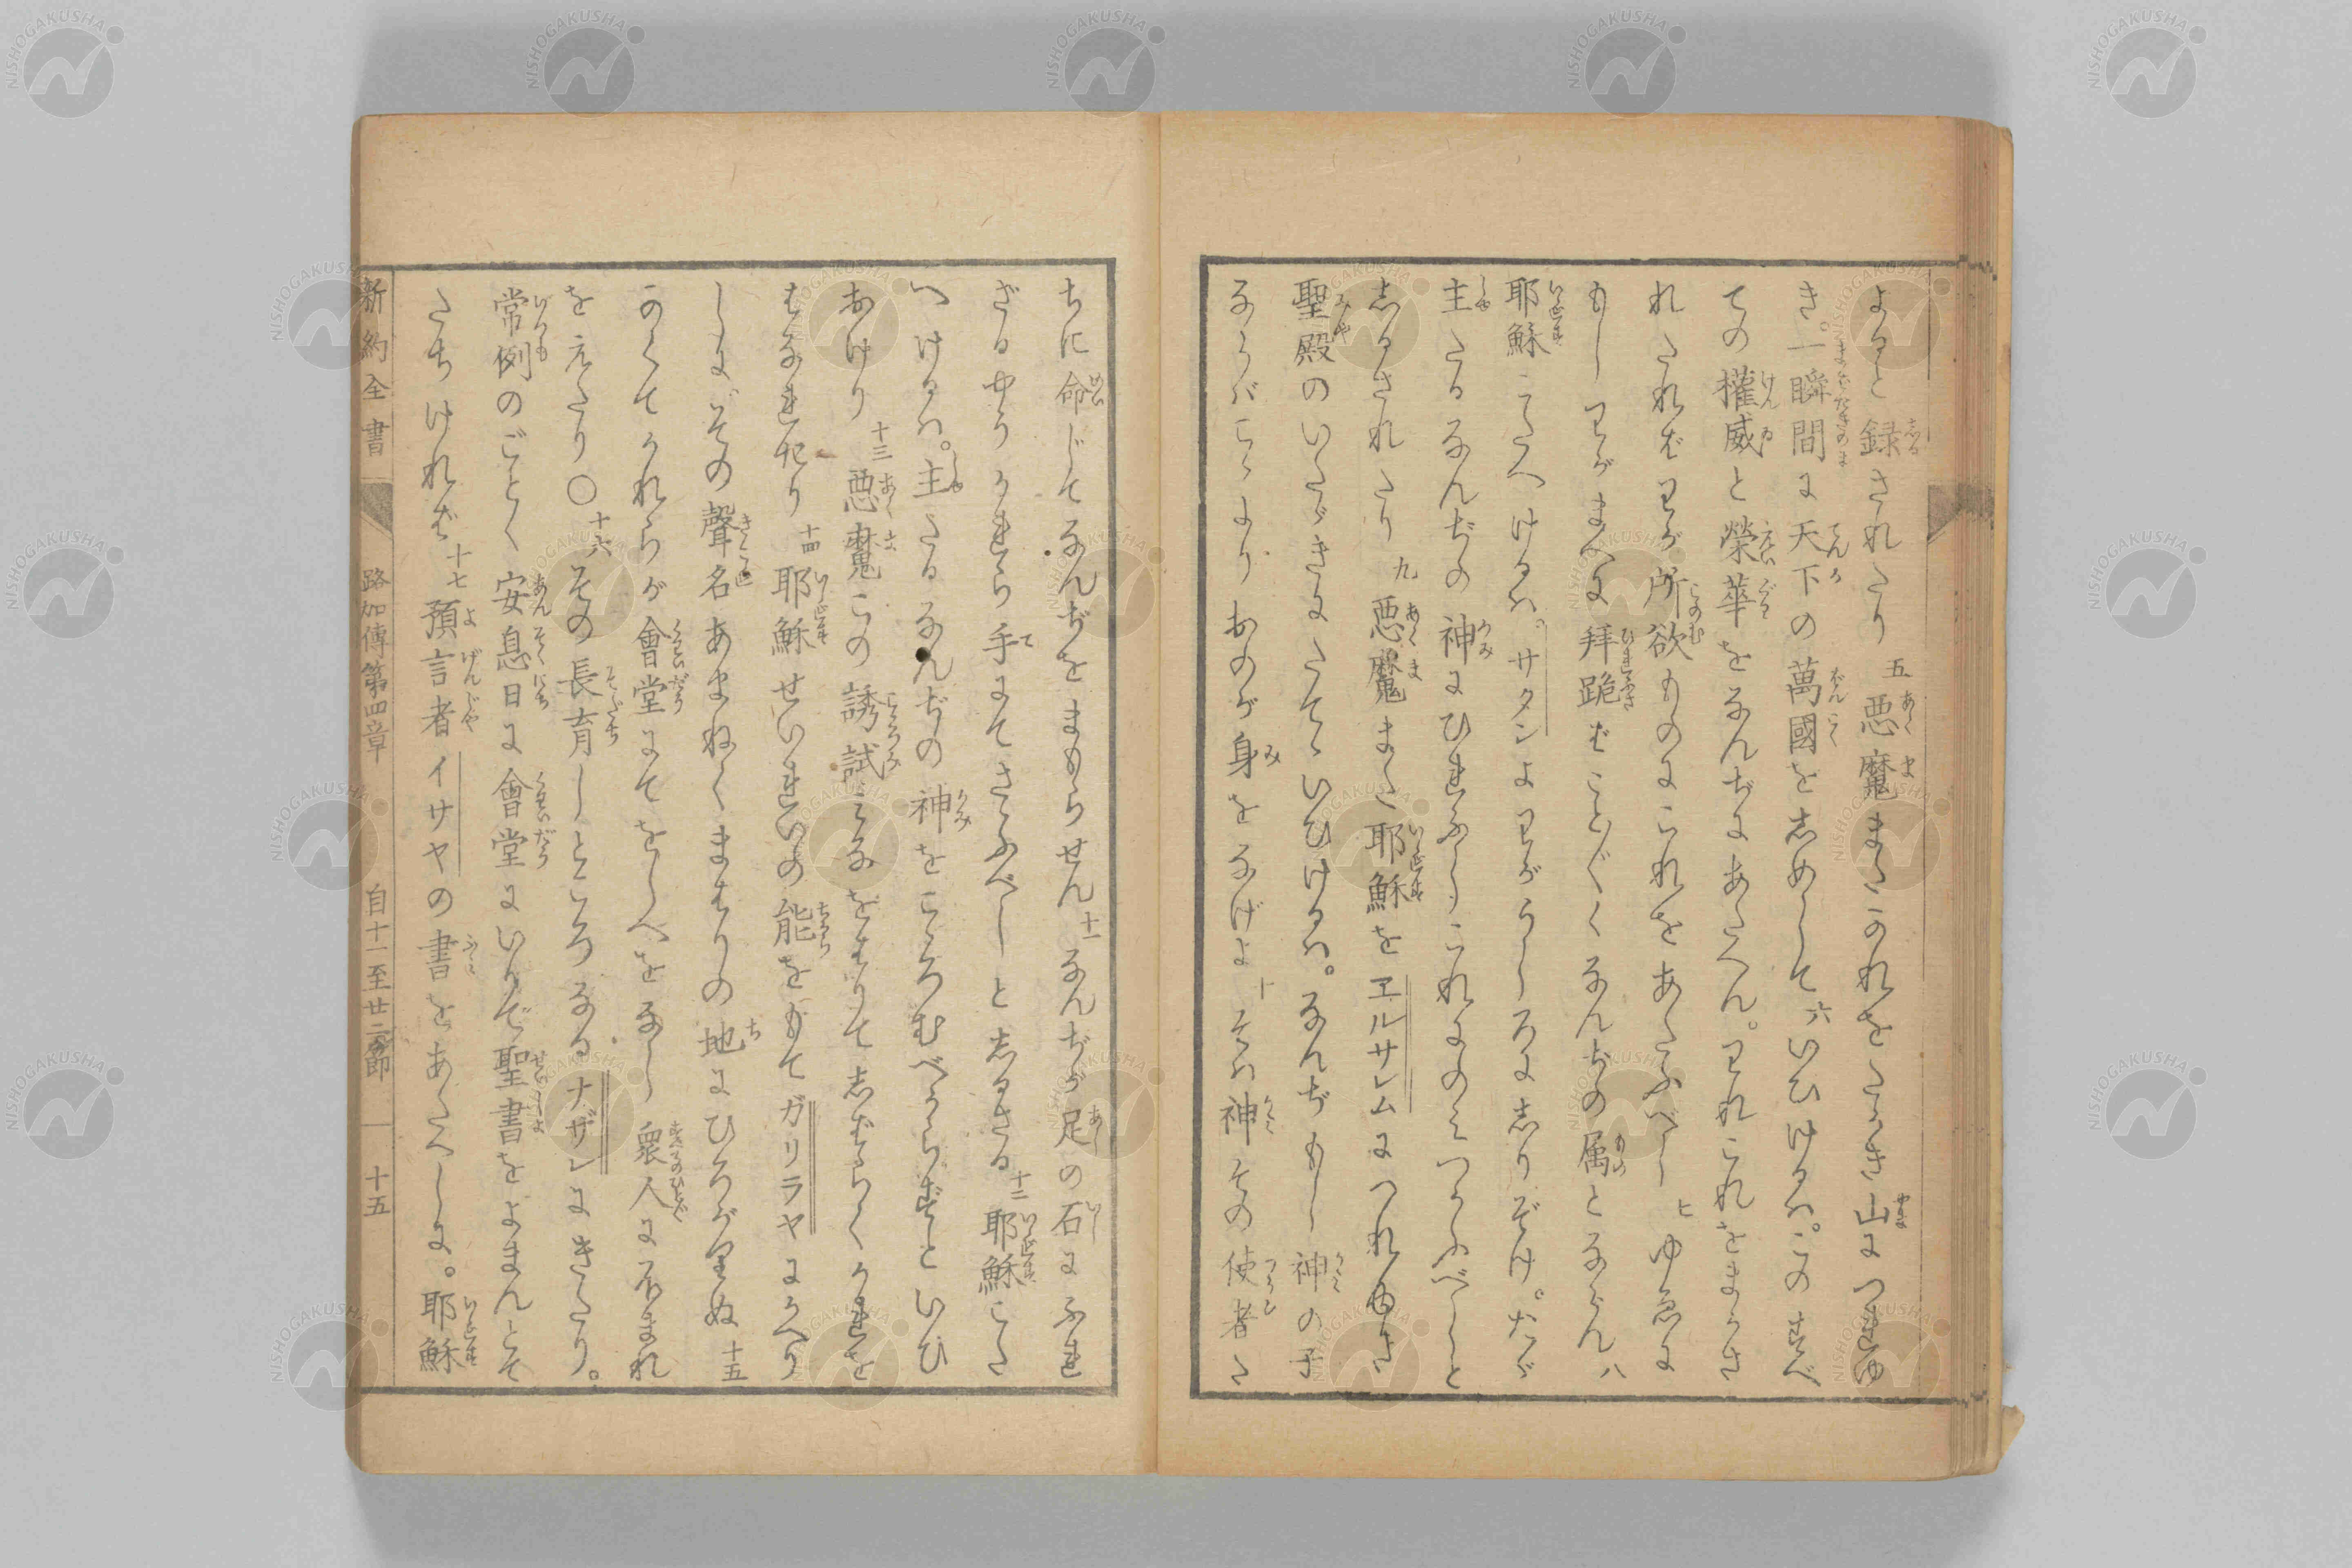 よると録されたり 五 惡魔またかれをたかき山につれゆ
き。一瞬間に天下の萬國をしめして 六 いひけるハ。この すべ
ての權威と榮華をなんぢにあたへん。われこれをまかさ
れたればわが所欲ものにこれをあたふべし 七 ゆゑに
もしわがまへに拜跪ばことごとくなんぢの属とならん 八
耶穌こたへけるハ。サタンよわがうしろにしりぞけ。たゞ
主たるなんぢの神にひれふしこれにのみつかふべしと
しるされたり 九 惡魔また耶穌をヱルサレムにつれゆき
聖殿のいたゞきにたてゝいひけるハ。なんぢもし神の子
ならバこゝよりおのが身をなげよ 十 そハ神その使者た
ちに命じてなんぢをまもらせん 十一 なんぢが足の石にふれ
ざるやうかれら手にてさゝふべしとしるさる 十二 耶穌こた
へけるハ。主たるなんぢの神をこゝろむべからずといひ
おけり 十三 惡魔この誘試みなをはりてしばらくかれを
はなれたり 十四 耶穌せいれいの能をもてガリラヤにかへり
しに。その聲名あまねくまはりの地にひろがりぬ 十五
かくてかれらが會堂にてをしへをなし衆人にほまれ
をえたり〇 十六 その長育しところなるナザレにきたり。
常例のごとく安息日に會堂にいりて聖書をよまんとて
たちければ 十七 預言者イサヤの書をあたへしに。耶穌
新約全書 路加傳第四章 自十一至廿二節 十五
NISHOGAKUSHA